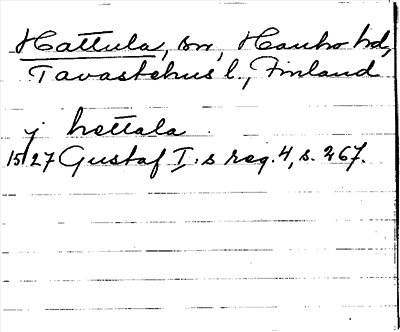 Hattula, sn, Hauho hd,
Tavastehus l., Finland
j hattala
1527 Gustaf I:s reg. 4, s. 267.